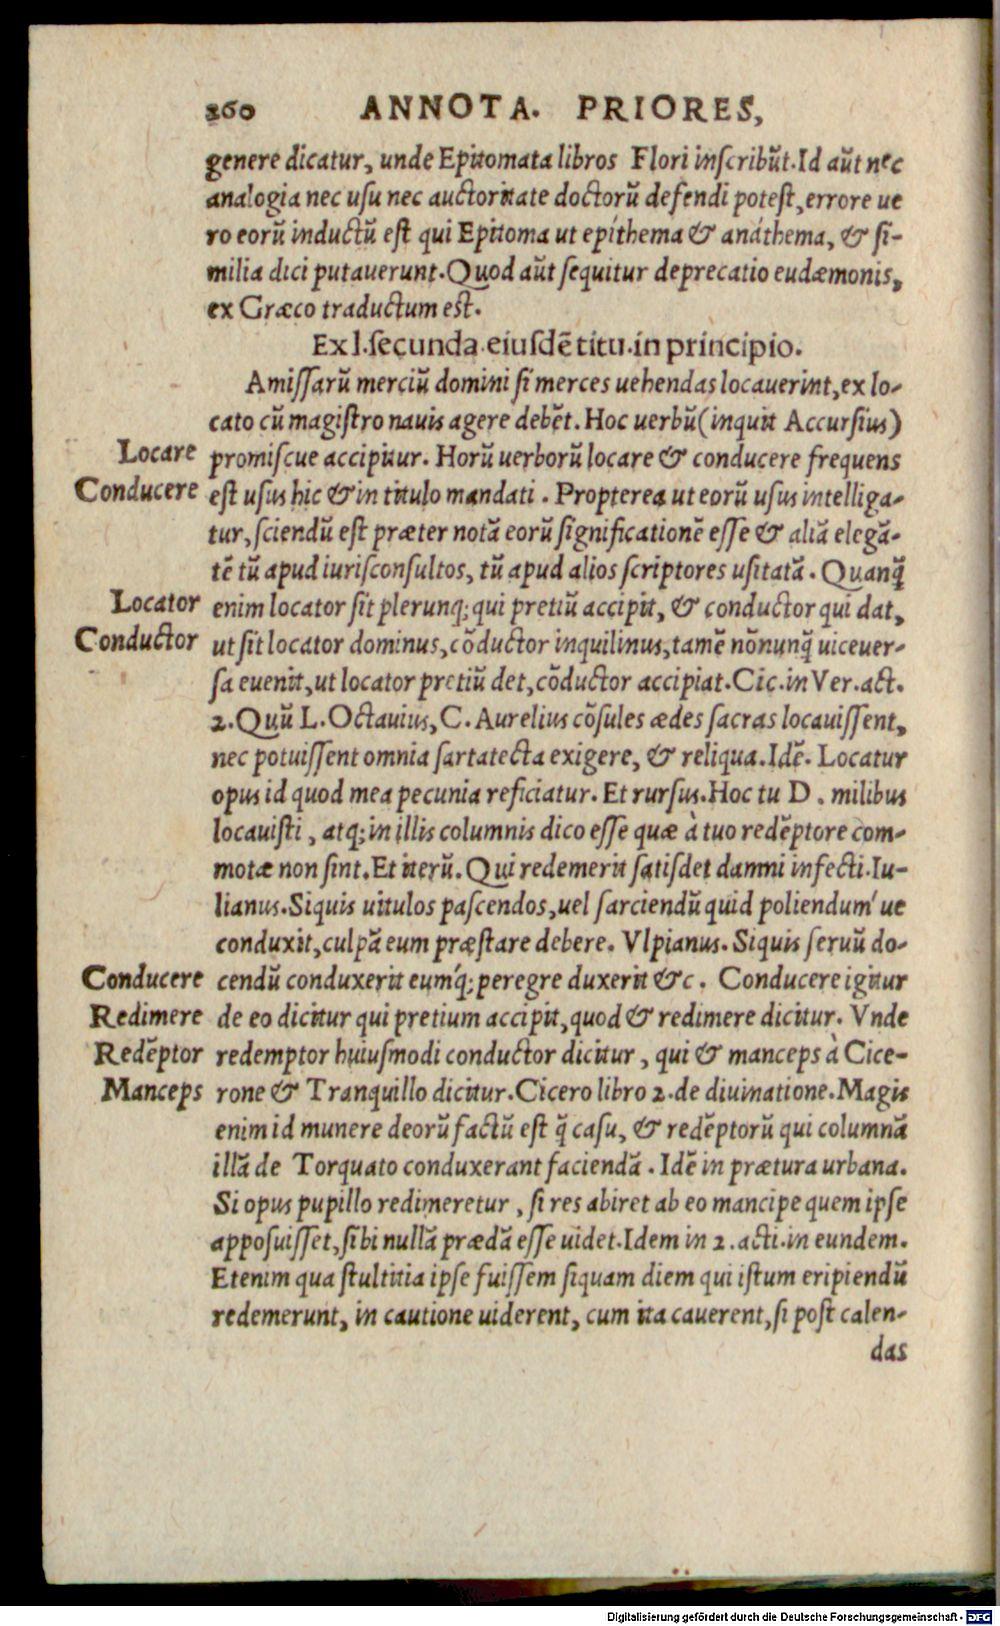 260 ANNOTA. PRIORES,
genere dicatur, unde Epitomata libros Flori inscribūt. Id aūt nec
analogia nec usu nec auctoritate doctorū defendi potest, errore ue
ro eorū inductū est qui Epitoma ut epíthema & anáthema, & si-
milia dici putauerunt. Quod aūt sequitur deprecatio eudæmonis,
ex Græco traductum est.
Ex l. secunda eiusdē titu. in principio.
Amissarū merciū domini si merces uehendas locauerint, ex lo-
cato cū magistro nauis agere debēt. Hoc uerbū (inquit Accursius)
Locare promiscue accipitur. Horū uerborū locare & conducere frequens
Conducere est usus hic & in titulo mandati. Propterea ut eorū usus intelliga-
tur, sciendū est præter notā eorū significationē esse & aliā elegā-
tē tū apud iurisconsultos, tū apud alios scriptores usitatā. Quanq̄
Locator enim locator sit plerunq; qui pretiū accipit, & conductor qui dat,
Conductor ut sit locator dominus, cōductor inquilinus, tamē nōnunq̄ uiceuer-
sa euenit, ut locator pretiū det, cōductor accipiat. Cic. in Ver. act.
2. Quū L. Octauius, C. Aurelius cōsules ædes sacras locauissent,
nec potuissent omnia sartatecta exigere, & reliqua. Idē. Locatur
opus id quod mea pecunia reficiatur. Et rursus. Hoc tu D. milibus
locauisti, atq; in illis columnis dico esse quæ à tuo redēptore com-
motæ non sint. Et iterū. Qui redemerit satisdet damni infecti. Iu-
lianus. Siquis uitulos pascendos, uel sarciendū quid poliendum´ue
conduxit, culpā eum præstare debere. Vlpianus. Siquis seruū do-
Conducere cendū conduxerit eum´q; peregre duxerit &c. Conducere igitur
Redimere de eo dicitur qui pretium accipit, quod & redimere dicitur. Vnde
Redēptor redemptor huiusmodi conductor dicitur, qui & manceps à Cice-
Manceps rone & Tranquillo dicitur. Cicero libro 2. de diuinatione. Magis
enim id munere deorū factū est q̄ casu, & redēptorū qui columnā
illā de Torquato conduxerant faciendā. Idē in prætura urbana.
Si opus pupillo redimeretur, si res abiret ab eo mancipe quem ipse
apposuisset, sibi nullā prædā esse uidet. Idem in 2. acti. in eundem.
Etenim qua stultitia ipse fuissem siquam diem qui istum eripiendū
redemerunt, in cautione uiderent, cum ita cauerent, si post calen-
das
Digitalisierung gefördert durch die Deutsche Forschungsgemeinschaft - DFG